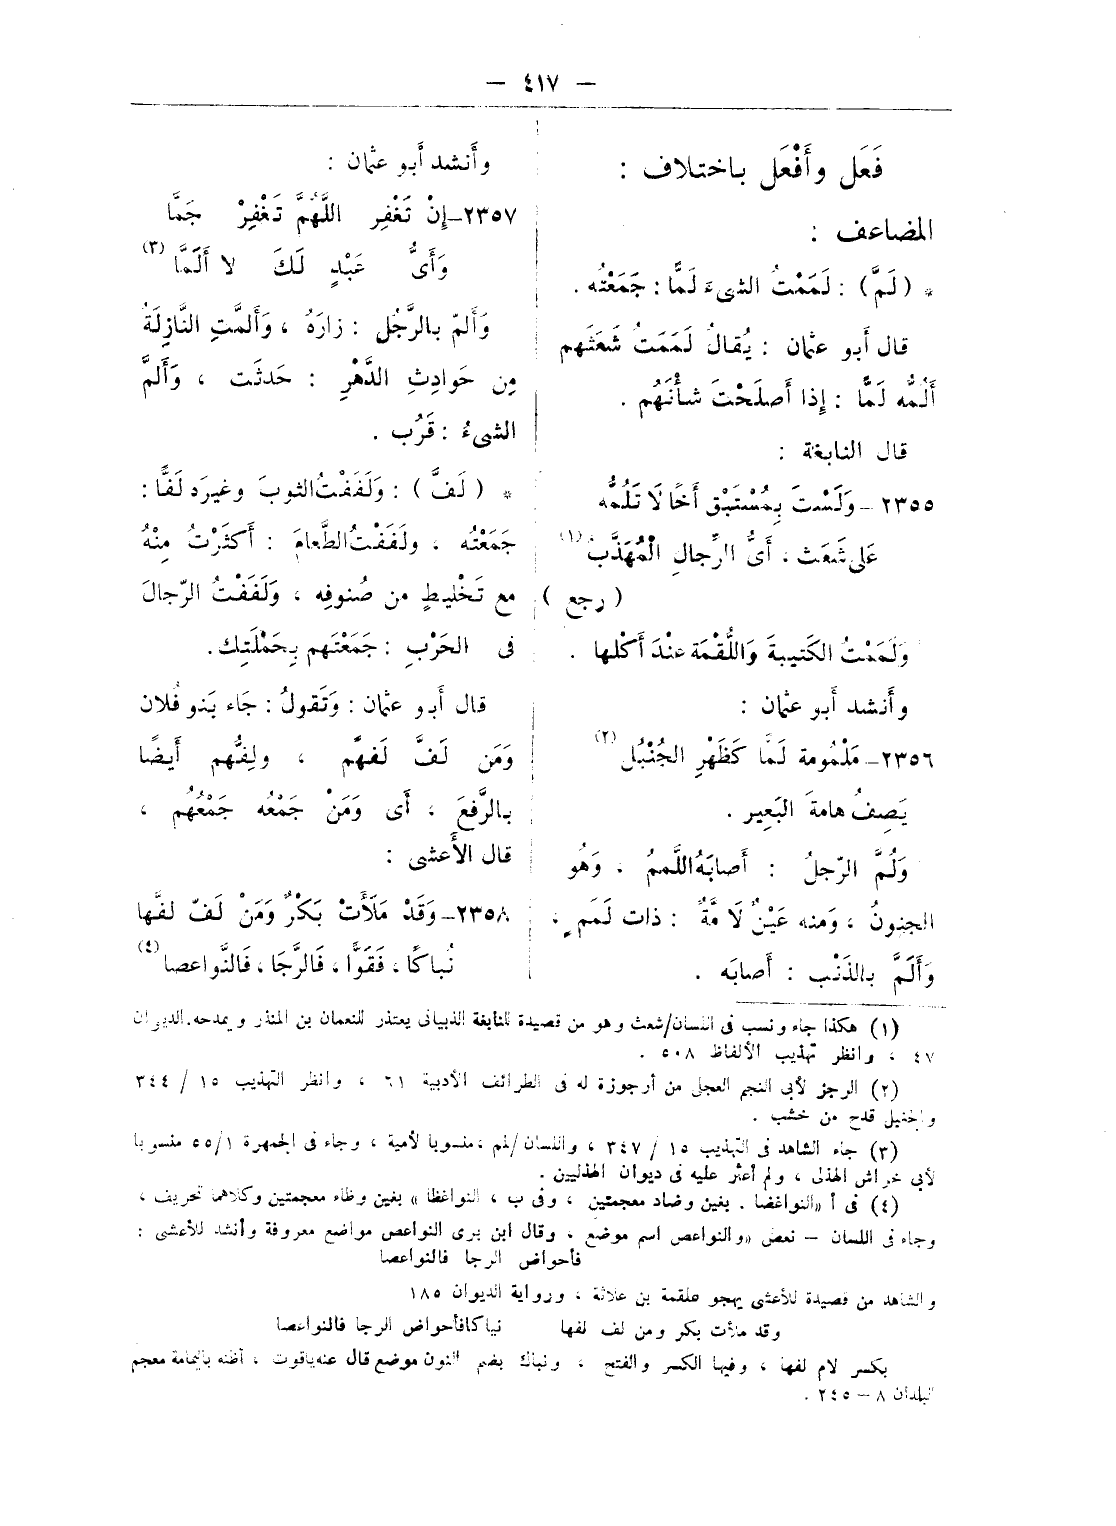 — ٤١٧ —
فَعَل وأَفْعَل باختلاف :
المضاعف :
* ( لَمَّ ) : لَمَمْتُ الشىءَ لَمًّا : جَمَعْتُه .
قال أَبو عثمان : يُقالُ لَمَمتُ شَعَثَهم
أَلُمُّه لَمًّا : إِذا أَصلَحْتَ شأْنَهُم .
قال النابغة :
٢٣٥٥ – وَلَسْتَ بِمُسْتَبْقٍ أَخًا لَا تَلُمُّه
عَلى شَعَث ، أَىُّ الرِّجالِ الْمُهَذَّبُ (١)
( رجع )
وَلَمَمْتُ الكَتيبةَ وَاللُّقْمَة عنْدَ أَكْلها .
وأَنشد أَبو عثمان :
٢٣٥٦ – مَلْمُومة لَمًّا كَظَهْرِ الجُنْبُل (٢)
يَصِفُ هامةَ البَعِير .
وَلُمَّ الرّجلُ : أَصابَهُ اللَّممُ ، وَهُو
الجنونُ ، وَمنه عَيْنٌ لَا مَّةٌ : ذات لَمَمٍ ،
وَأَلَمَّ بالذَنْب : أَصابَه .
وأَنشد أَبو عثمان :
٢٣٥٧ – إِنْ تَغْفِر اللَّهُمَّ تَغْفِرْ جَمَّا
وَأَىُّ عَبْدٍ لَكَ لا أَلَمَّا (٣)
وَأَلمّ بالرَّجُل : زارَهُ ، وَأَلمَّتِ النَّازِلَةُ
مِن حَوادِثِ الدَّهْرِ : حَدثَت ، وَأَلمَّ
الشىءُ : قَرُب .
* ( لَفَّ ) : وَلَفَفْتُ الثوبَ وغيرَه لَفًّا :
جَمَعْتُه ، ولَفَفْتُ الطَّعامَ : أَكثَرْتُ مِنْهُ
مع تَخْليطٍ من صُنوفِه ، وَلَفَفْتُ الرّجالَ
فى الحَرْبِ : جَمَعْتَهم بِحَمْلَتِك .
قال أَبو عثمان : وَتَقولُ : جَاء بَنو فُلان
وَمَن لَفَّ لَفهَّم ، ولِفُّهم أَيضًا
بالرَّفعَ ، أَى وَمَنْ جَمْعُه جَمْعُهُم ،
قال الأَعشى :
٢٣٥٨ – وَقَدْ مَلَأَتْ بَكْرٌ وَمَنْ لَفّ لفَّها
نُباكًا ، فَقَوًّا ، فَالرَّجَا ، فَالنَّواعصا (٤)
(١) هكذا جاء ونسب فى اللسان/شعث وهو من قصيدة للنابغة الذبيانى يعتذر للنعمان بن المنذر ويمدحه. الديوان
٤٧ ، وانظر تهذيب الألفاظ ٥٠٨ .
(٢) الرجز لأبى النجم العجلى من أرجوزة له فى الطرائف الأدبية ٦١ ، وانظر التهذيب ١٥ / ٣٤٤
والجنبل قدح من خشب .
(٣) جاء الشاهد فى التهذيب ١٥ / ٣٤٧ ، واللسان/لمم ، منسوبا لأمية ، وجاء فى الجمهرة ١/ ٥٥ منسوبا
لأبى خراش الهذلى ، ولم أعثر عليه فى ديوان الهذليين .
(٤) فى أ «النواغضا . بغين وضاد معجمتين ، وفى ب ، النواغظا » بغين وظاء معجمتين وكلاهما تحريف ،
وجاء فى اللسان – نعص «والنواعص اسم موضع ، وقال ابن برى النواعص مواضع معروفة وأنشد للأعشى :
فأحواض الرجا فالنواعصا
والشاهد من قصيدة للأعشى يهجو علقمة بن علاثة ، ورواية الديوان ١٨٥
وقد ملأت بكر ومن لف لفها نباكا فأحواض الرجا فالنواعصا
بكسر لام لفها ، وفيها الكسر والفتح ، ونباك بضم النون موضع قال عنه ياقوت ، أظنه باليمامة معجم
البلدان ٨ – ٢٤٥ .